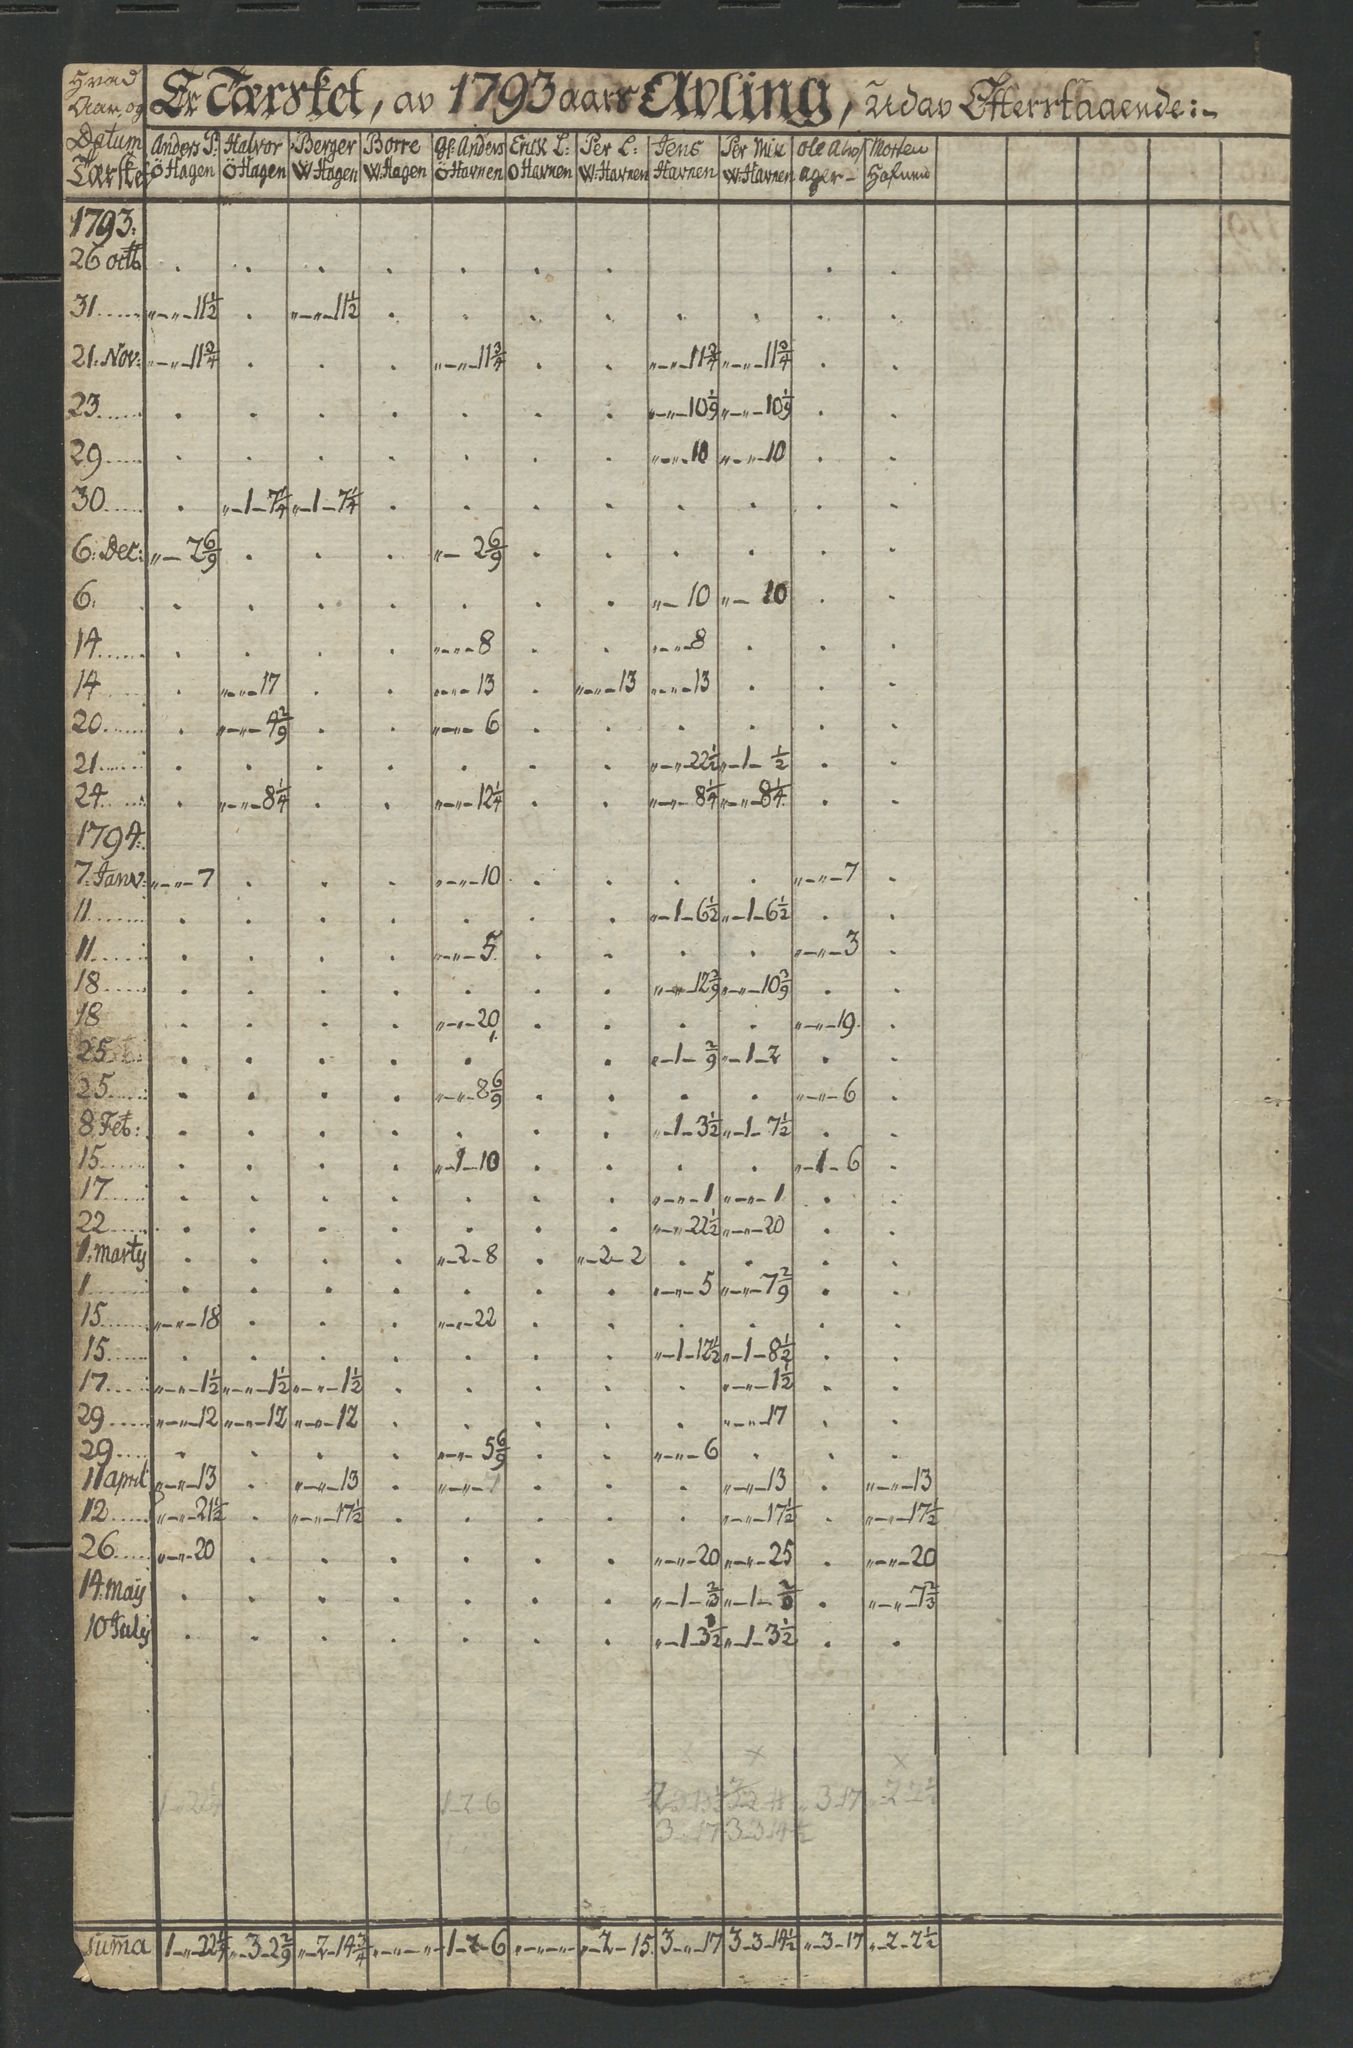 Hvad
Aar, og
Datum
Tærsket
Er Tærsket, av 1793 aars Avling, udav Efterstaaende:-
Anders P: Ö Hagen | Halvor Ö Hagen | Berger W: Hagen | Borre W: Hagen | Gf: Anders Ö Havnen | Erick L: O Havnen | Per L: W: Havnen | Jens Havnen | Per Mix W: Havnen | Ole Alvs ager- | Morten Hofvend
1793:
26 octb . . . . . . . . .
31...... „-„-11½ . „-„-11½ . . . . . . . .
21: Nov: „-„-11¾ . . . „-„-11¾ . . „-„-11¾ „-„-11¾ . .
23...... . . . . . . . „-„-10 1/9 „-„-10 1/9 . .
29...... . . . . . . . „-„-10 „-„-10 . .
30...... . „-1-7¼ „-1-7¼ . . . . . . . .
6: Dec: „- 2 6/9 . . . „- 2 6/9 . . . . . .
6: . . . . . . . „- 10 „- 10 . .
14...... . . . . „-„-8 . . „-„-8 . . .
14 . „-„-17 . . „-„-13 . „-„-13 „-„-13 . . .
20...... . „-„-4 2/9 . . „-„-6 . . . . . .
21...... . . . . . . . „-„-22½ „-1-½ . .
24...... . „-„-8¼ . . „-„-12¼ . . „-„-8¼ „-„-8¼ . .
1794:
7: Janv: „-„-7 . . . „-„-10 . . . . „-„-7 .
11...... . . . . . . . „-1-6½ „-1-6½ . .
11...... . . . . „-„-5 . . . . „-„-3 .
18...... . . . . . . . „-„-12 2/9 „-„-10 2/9 . .
18 . . . . „-„-20 . . . . „-„-19 .
25 . . . . . . „-1-2/9 „-1-2 . .
25...... . . . . „-„-8 6/9 . . . . „-„-6 .
8 Feb: . . . . . . . „-1-3½ „-1-7½ . .
15...... . . . . „-1-10 . . . . „-1-6 .
17...... . . . . . . . „-„-1 „-„-1 . .
22...... . . . . . . . „-„-22½ „-„-20 . .
1: marty . . . . „-2-8 . „-2-2 . . . .
1...... . . . . . . . „-„-5 „-„-7 2/9 . .
15...... „-„-18 . . . „-„-22 . . . . . .
15...... . . . . . . . „-1-12½ „-1-8½ . .
17...... „-„-1½ „-„-1½ „-„-1½ . . . . . „-„-1½ . .
29...... „-„-12 „-„-12 „-„-12 . . . . . „-„-17 . .
29...... . . . . „-„-5 6/9 . . „-„-6 . . .
11 april „-„-13 . „-„-13 . „-„- . . . „-„-13 . „-„-13
12...... „-„-21½ . „-„-17½ . . . . . „-„-17½ . „-„-17½
26...... „-„-20 . . . . . . „-„-20 „-„-25 . „-„-20
14: may . . . . . . . „-1-2/3 „-1-2/3 . „-„-7 2/3
10 July . . . . . . . „-1-3½ „-1-3½ . .
x x
1 „ 22¼ 1-2-6 3-17 2-2½
3-„-17 3-3-14½
Suma 1-„-22¼ „-3-2 2/9 „-2-14¾ „-„-„- 1-2-6 „-„-„- „-2-15 3-„-17 3-3-14½ „-3-17 „-2-2½